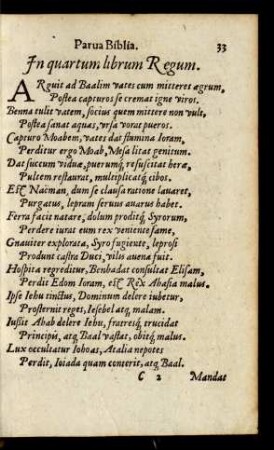 Parua Biblia. 33
In quartum librum Regum.
ARguit ad Baalim vates cum mitteret ægrum,
Postea capturos se cremat igne viros.
Benna tulit vatem, socius quem mittere non vult,
Postea sanat aquas, vrsa vorat pueros.
Capturo Moabem, vates dat flumina Ioram,
Perditur ergo Moab, Mesa litat genitum.
Dat succum viduæ, puerumq́; resuscitat heræ,
Pultem restaurat, multiplicatq́; cibos.
Est Naiman, dum se clausa ratione lauaret,
Purgatus, lepram seruus auarus habet.
Ferra facit natare, dolum proditq́; Syrorum,
Perdere iurat eum rex veniente fame,
Gnauiter explorata, Syro fugiente, leprosi
Produnt castra Duci, vilis auena fuit.
Hospita regreditur, Benhadat consultat Elisam,
Perdit Edom Ioram, est Rex Ahasia malus.
Ipse Iehu tinctus, Dominum delere iubetur,
Prosternit reges, Iesebel atq́; malam.
Iussit Ahab delere Iehu, fratresq́; trucidat
Principis, atq́; Baal vastat, obitq́; malus.
Lux occultatur Iohoas, Atalia nepotes
Perdit, Ioiada quam conterit, atq́; Baal.
C 2 Mandat